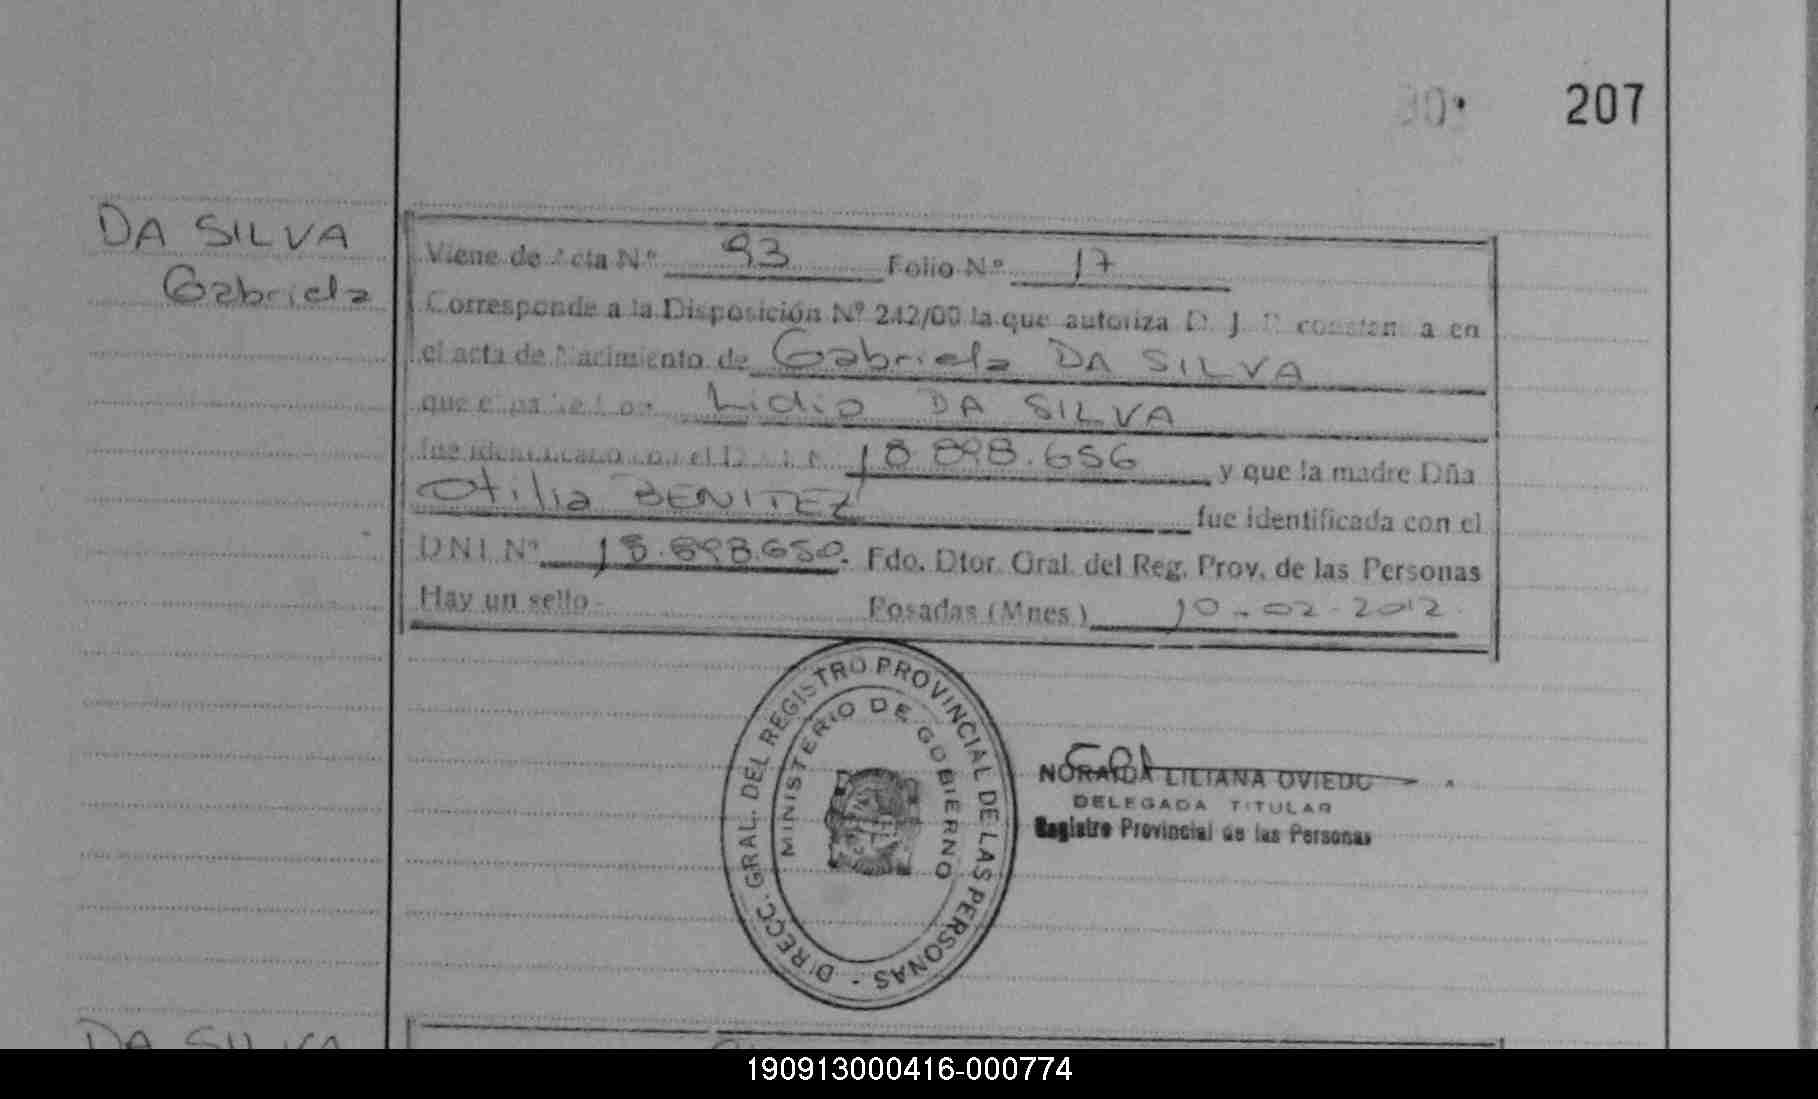 207
DA SILVA
Gabriela
Viene de Acta Nº 93 Folio Nº 17
Corresponde a la Disposición Nº 242/00 la que autoriza D. J. en
el acta de Nacimiento de Gabriela DA SILVA
que el padre Don Lidio DA SILVA
fue identificado con el D.N.I. Nº 18.898.656 y que la madre Dña
Otilia BENITEZ fue identificada con el
DNI. Nº 18.898.650. Fdo. Dtor. Gral. del Reg. Prov. de las Personas
Hay un sello - Posadas (Mnes.) 10-02-2012.
DIRECC. GRAL. DEL REGISTRO PROVINCIAL DE LAS PERSONAS -
MINISTERIO DE GOBIERNO
NORAIDA LILIANA OVIEDO
DELEGADA TITULAR
Registro Provincial de las Personas
DA SILVA
190913000416-000774